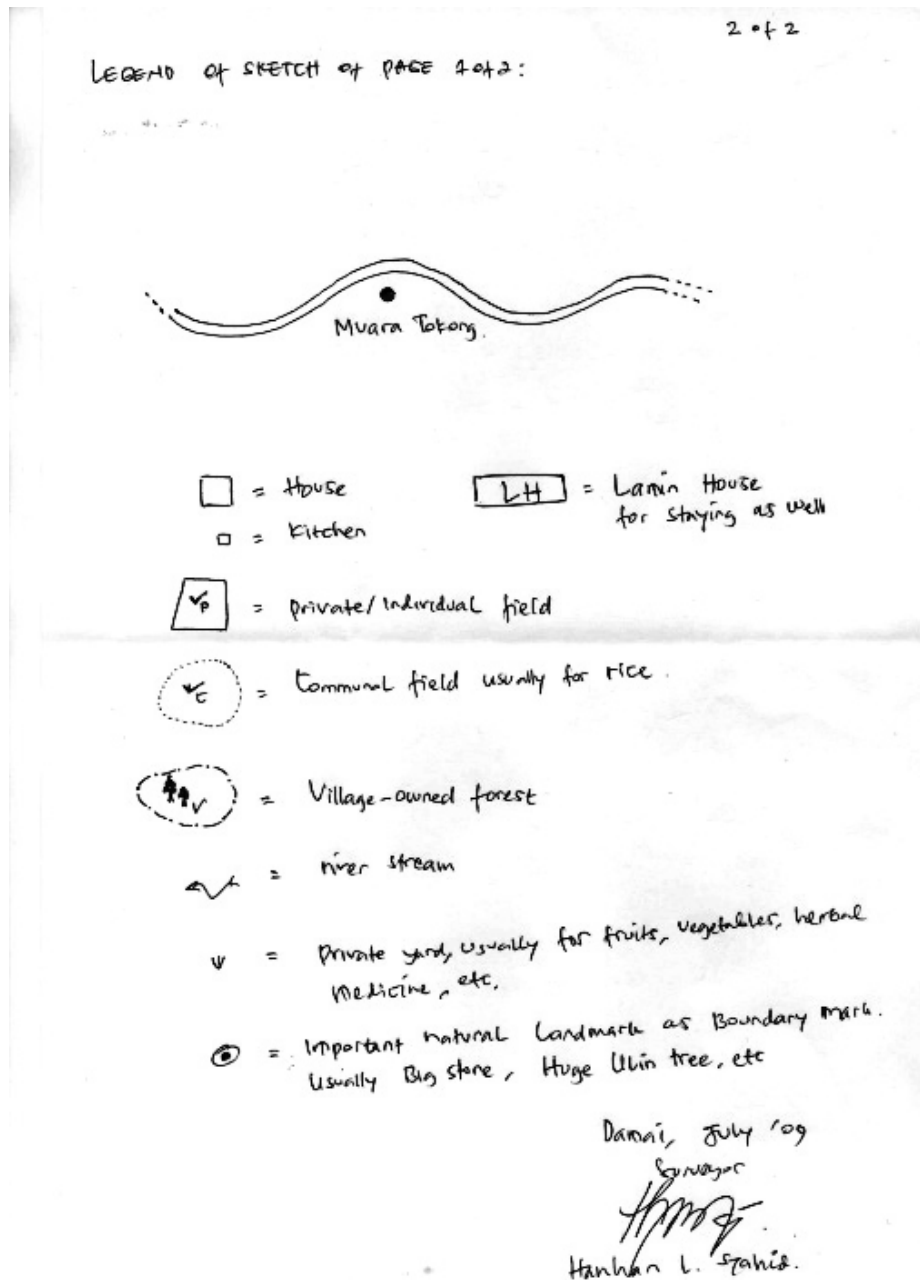 2 of 2
LEGEND of SKETCH of PAGE 1 of 2:
Muara Tokong.
= House
= Kitchen
LH = Lamin House
for staying as well
√p = private/individual field
√c = Communal field usually for rice.
V = Village-owned forest
= river stream
= private yard, usually for fruits, vegetables, herbal
medicine, etc.
= Important natural Landmark as Boundary mark.
Usually Big stone, Huge Ulin tree, etc
Damai, July '09
Surveyor
Hanhan L. Syahid.